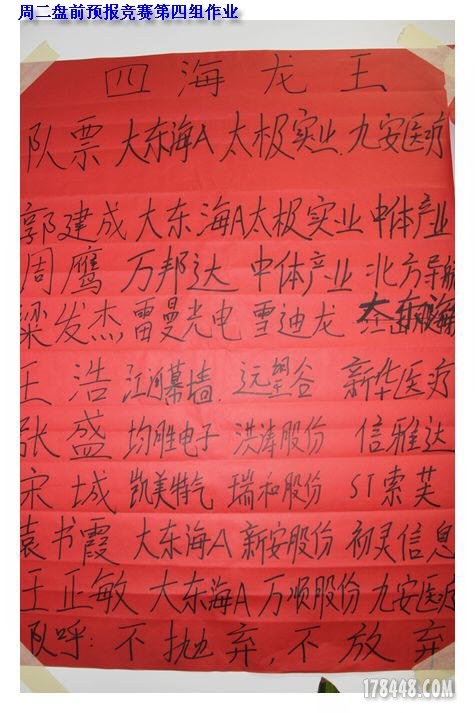 周二盘前预报竞赛第四组作业
四海龙王
队票 大东海A 太极实业 九安医疗
郭建成 大东海A 太极实业 中体产业
周鹰 万邦达 中体产业 北方导航
梁发杰 雷曼光电 雪迪龙 大东海
王浩 江河幕墙 远望谷 新华医疗
张盛 均胜电子 洪涛股份 信雅达
宋城 凯美特气 瑞和股份 ST索芙
袁书霞 大东海A 新安股份 初灵信息
王正敏 大东海A 万顺股份 九安医疗
队呼:不抛弃,不放弃
178448.COM